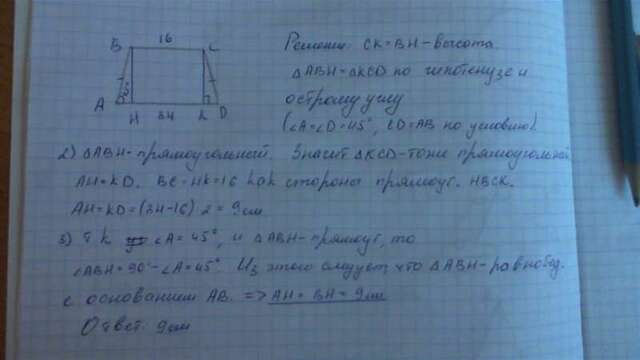 16
B C
A H K D
34
Решение: CK=BH-высота.
∆ABH=∆KCD по гипотенузе и
острому углу
(∠A=∠D=45°, CD=AB по условию).
2) ∆ABH-прямоугольный. Значит ∆KCD-тоже прямоугольный
AH=KD. BC=HK=16 как стороны прямоуг. HBCK.
AH=KD=(34-16):2=9см
3) т.к ∠A=45°, и ∆ABH-прямоуг, то
∠ABH=90°-∠A=45°. Из этого следует, что ∆ABH-равнобед.
с основанием AB. => AH=BH=9см
Ответ: 9см